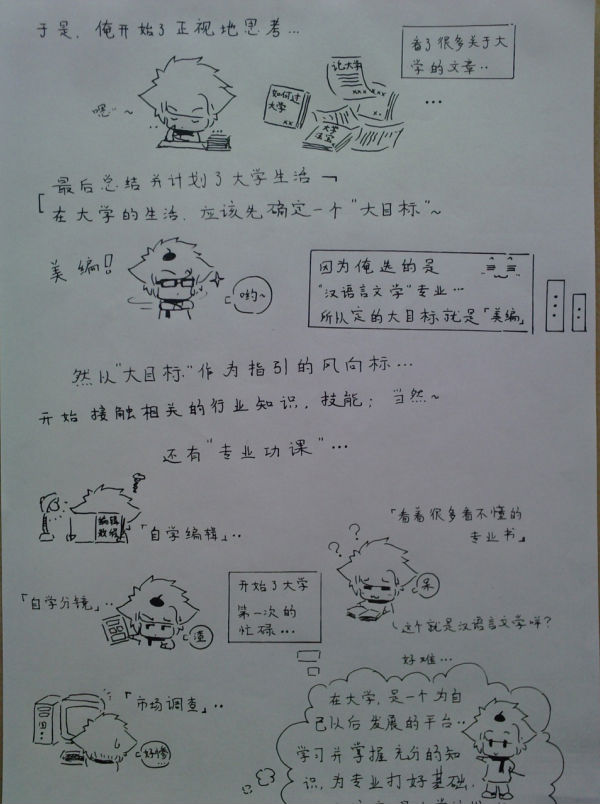 于是，俺开始了正视地思考…
看了很多关于大
学的文章··
嗯~
论大学
xxx
如何过
大学
xx
大学
法宝
…
最后总结并计划了大学生活
在大学的生活，应该先确定一个“大目标”~
美编!
哟~
因为俺选的是
“汉语言文学”专业…
所以定的大目标就是「美编」
然以“大目标”作为指引的风向标…
开始接触相关的行业知识，技能；当然~
还有“专业功课”…
编辑
教程
「自学编辑」··
「看着很多看不懂的
专业书」
??
呆
「自学分镜」··
渣
开始了大学
第一次的
忙碌…
这个就是汉语言文学咩?
好难…
「市场调查」··
在大学，是一个为自
己以后发展的平台··
学习并掌握充分的知
识，为专业打好基础，